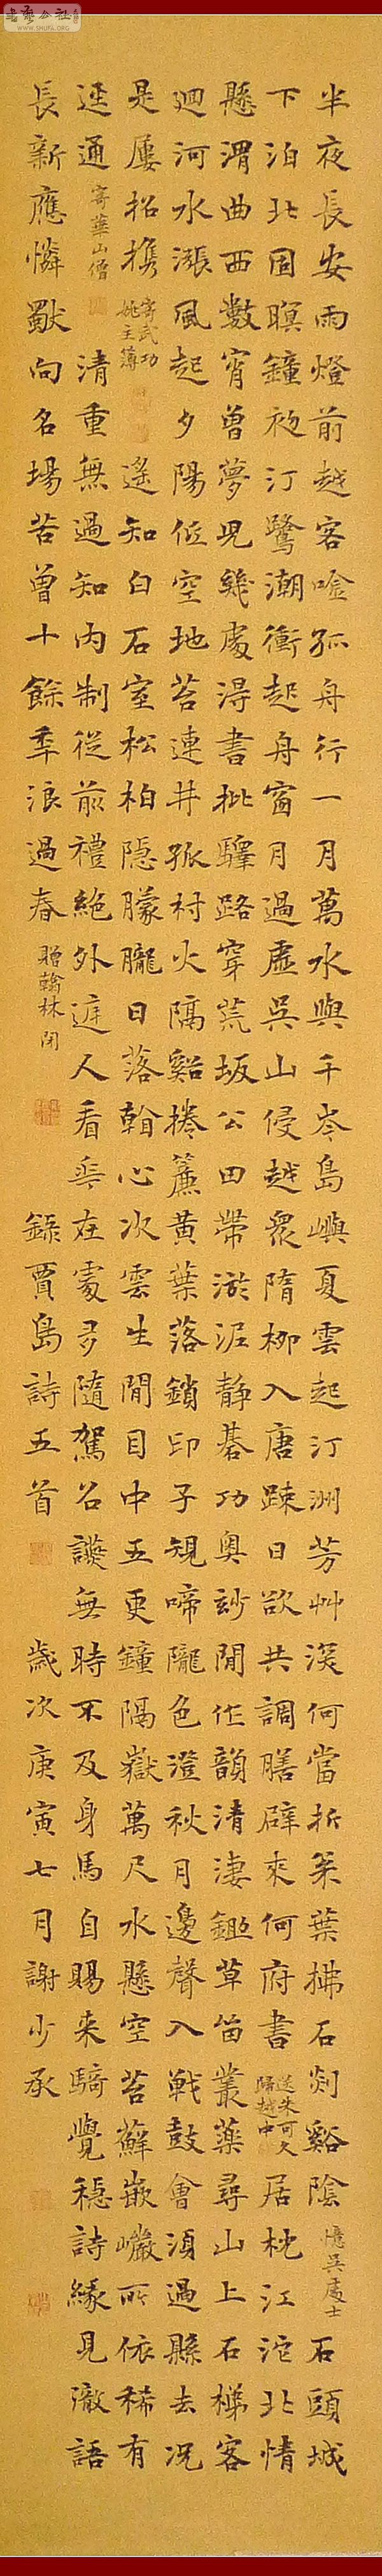 書藝公社
WWW.SHUFA.ORG
半夜長安雨燈前越客唫孤舟行一月萬水與千岑島嶼夏雲起汀洲芳艸深何當折茱葉拂石剡谿陰 憶吳處士 石頭城
下泊北固暝鐘初汀鷺潮衝起舟窗月過虛吳山侵越眾隋柳入唐疎日欲共調膳辟來何府書 送朱可久歸越中 居枕江沱北情
懸渭曲西數宵曾夢見幾處得書批驛路穿荒坂公田帶淤泥靜棊功奧妙閒作韻清淒鋤草留叢藥尋山上石梯客
迴河水漲風起夕陽低空地苔連井孤村火隔谿捲簾黃葉落鎖印子規啼隴色澄秋月邊聲入戰鼓會須過縣去況
是屢招携 寄武功姚主簿 遙知白石室松柏隱朦朧月落翰心次雲生閒目中五更鐘隔嶽萬尺水懸空苔蘚嵌巖所依稀有
逕通 寄華山僧 清重無過知內制從前禮絕外庭人看花在處多隨駕召讌無時不及身馬自賜來騎覺穩詩緣見徹語
長新應憐獻向名場苦曾十餘年浪過春 贈翰林 錄賈島詩五首 歲次庚寅七月謝少承